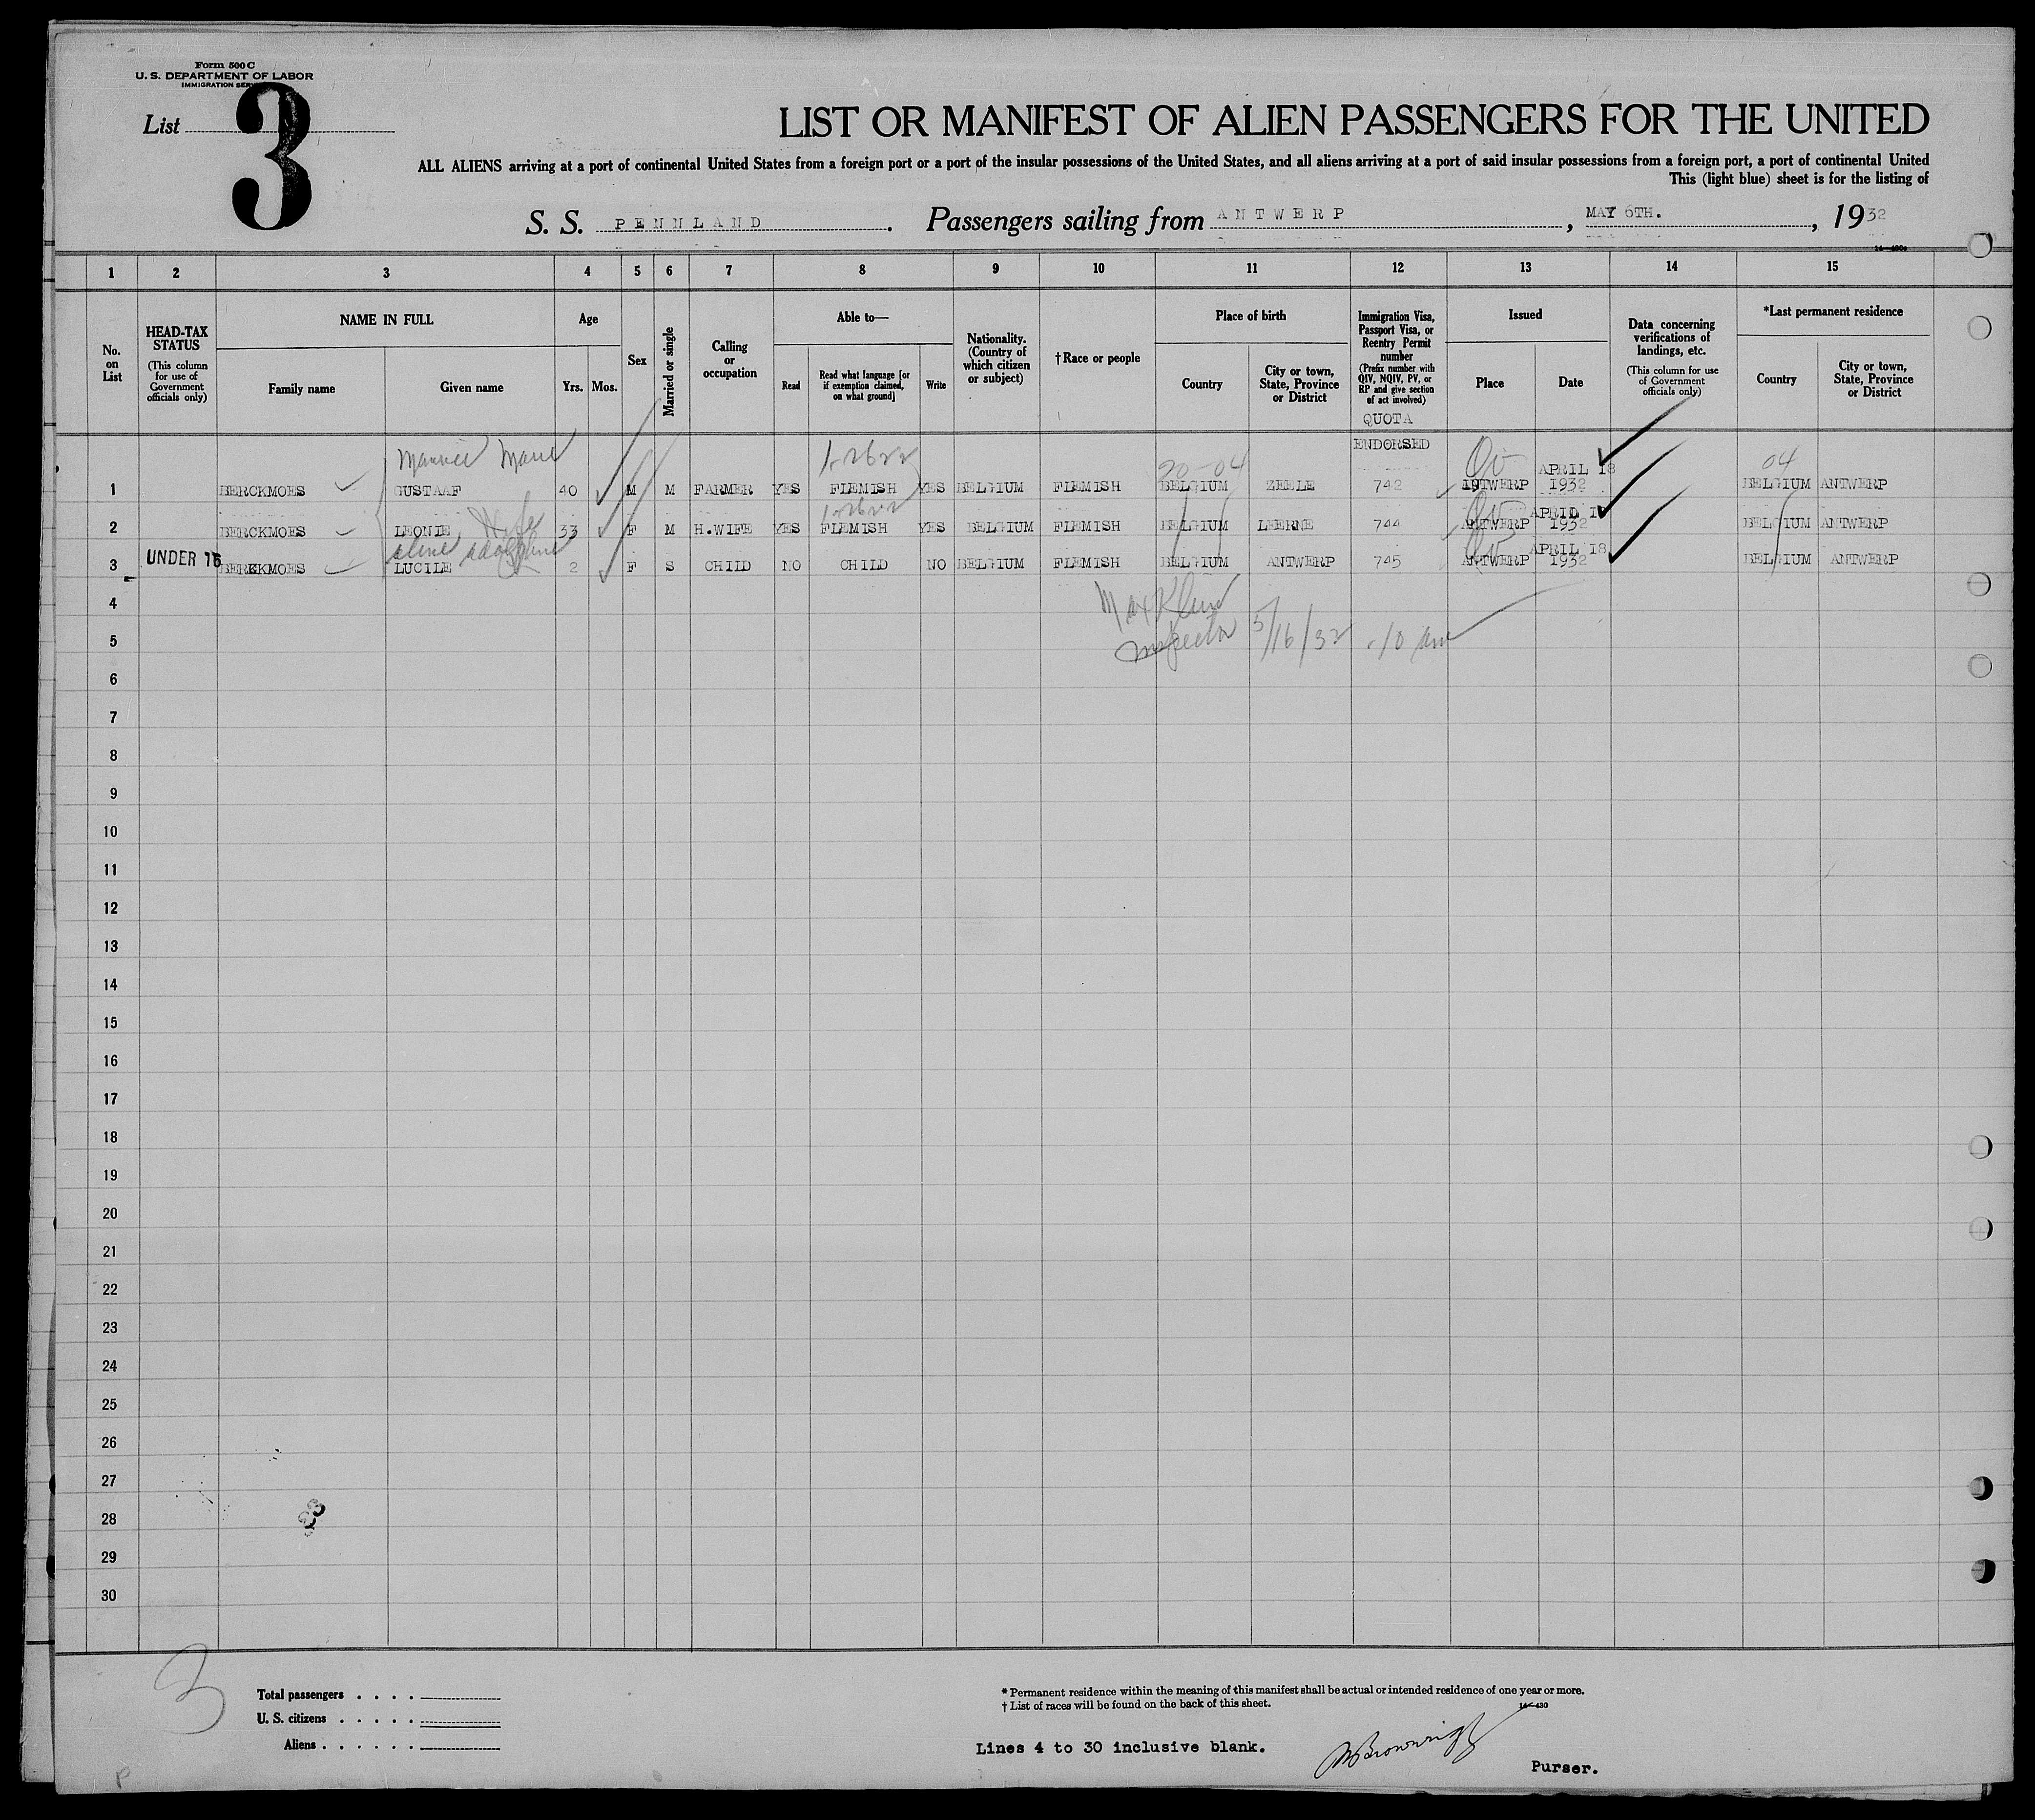 Form 500 C
U. S. DEPARTMENT OF LABOR
IMMIGRATION
List 3
LIST OR MANIFEST OF ALIEN PASSENGERS FOR THE UNITED
ALL ALIENS arriving at a port of continental United States from a foreign port or a port of the insular possessions of the United States, and all aliens arriving at a port of said insular possessions from a foreign port, a port of continental United
This (light blue) sheet is for the listing of
S. S. PENNLAND. Passengers sailing from ANTWERP, MAY 6TH., 1932
1 2 3 4 5 6 7 8 9 10 11 12 13 14 15
No. on List
HEAD-TAX STATUS (This column for use of Government officials only)
NAME IN FULL
Family name Given name
Age
Yrs. Mos.
Sex
Married or single
Calling or occupation
Able to—
Read
Read what language [or if exemption claimed, on what ground]
Write
Nationality. (Country of which citizen or subject)
†Race or people
Place of birth
Country
City or town, State, Province or District
Immigration Visa, Passport Visa, or Reentry Permit number (Prefix number with QIV, NQIV, PV, or RP and give section of act involved)
QUOTA
ENDORSED
Issued
Place Date
Data concerning verifications of landings, etc. (This column for use of Government officials only)
*Last permanent residence
Country
City or town, State, Province or District
Maurice Marie 20-04 QV APRIL 18 04
1 BERCKMOES GUSTAAF 40 M M FARMER YES FLEMISH YES BELGIUM FLEMISH BELGIUM ZEELE 742 ANTWERP 1932 BELGIUM ANTWERP
Wife
2 BERCKMOES LEONIE 33 F M H.WIFE YES FLEMISH YES BELGIUM FLEMISH BELGIUM 744 ANTWERP 1932 BELGIUM ANTWERP
UNDER 16 APRIL 18
3 BERCKMOES LUCILE 2 F S CHILD NO CHILD NO BELGIUM FLEMISH BELGIUM ANTWERP 745 ANTWERP 1932 BELGIUM ANTWERP
4
Inspector 5/16/32 10 am
5
6
7
8
9
10
11
12
13
14
15
16
17
18
19
20
21
22
23
24
25
26
27
28
29
30
3
Total passengers . . . .
U. S. citizens . . . . .
Aliens . . . . . .
* Permanent residence within the meaning of this manifest shall be actual or intended residence of one year or more.
† List of races will be found on the back of this sheet.
Lines 4 to 30 inclusive blank.
Purser.